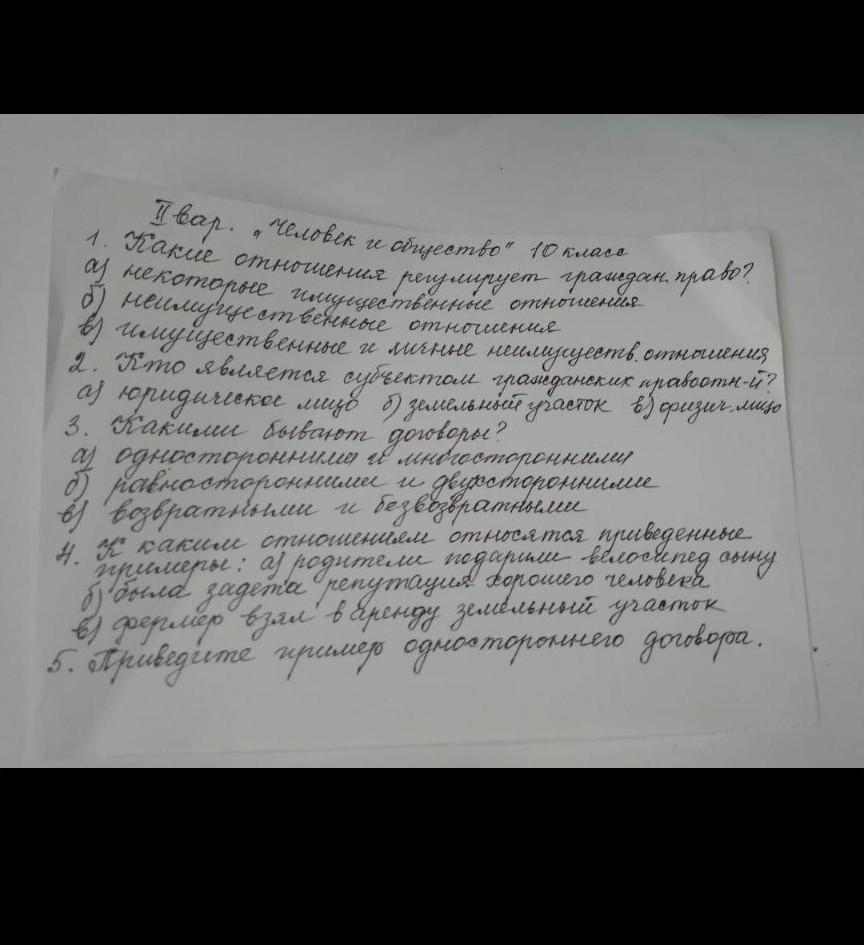 II вар. "Человек и общество" 10 класс
1. Какие отношения регулирует граждан. право?
а) некоторые имущественные отношения
б) неимущественные отношения
в) имущественные и личные неимуществ. отношения
2. Кто является субъектом гражданских правоотн-й?
а) юридическое лицо б) земельный участок в) физич. лицо
3. Какими бывают договоры?
а) односторонними и многосторонними
б) равносторонними и двухсторонними
в) возвратными и безвозвратными
4. К каким отношениям относятся приведенные
примеры: а) родители подарили велосипед сыну
б) была задета репутация хорошего человека
в) фермер взял в аренду земельный участок
5. Приведите пример одностороннего договора.